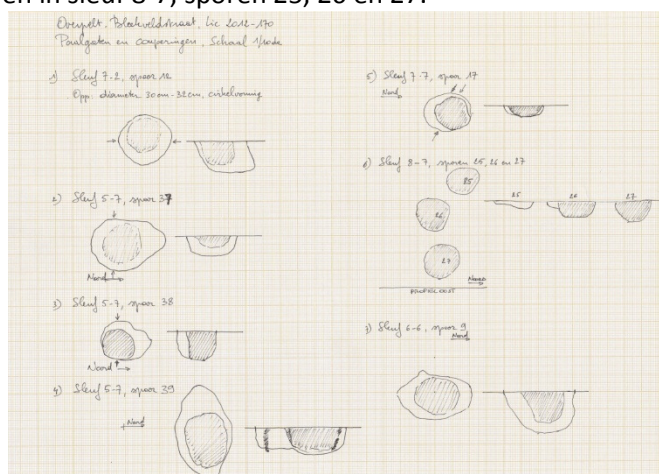 en in sleuf 8-7, sporen 25, 26 en 27.
Overpelt. Bleekveldstraat, Lic 2012-170
Paalgaten en couperingen, Schaal 1/10de
1) Sleuf 7-2, spoor 12
Opp. diameter 30cm-32cm, cirkelvormig
2) Sleuf 5-7, spoor 37
Nord
3) Sleuf 5-7, spoor 38
Nord
4) Sleuf 5-7, spoor 39
Nord
5) Sleuf 7-7, spoor 17
Nord
6) Sleuf 8-7, sporen 25, 26 en 27
25
26
27
25 26 27
Noord
PROFIEL OOST
7) Sleuf 6-6, spoor 9
Nord